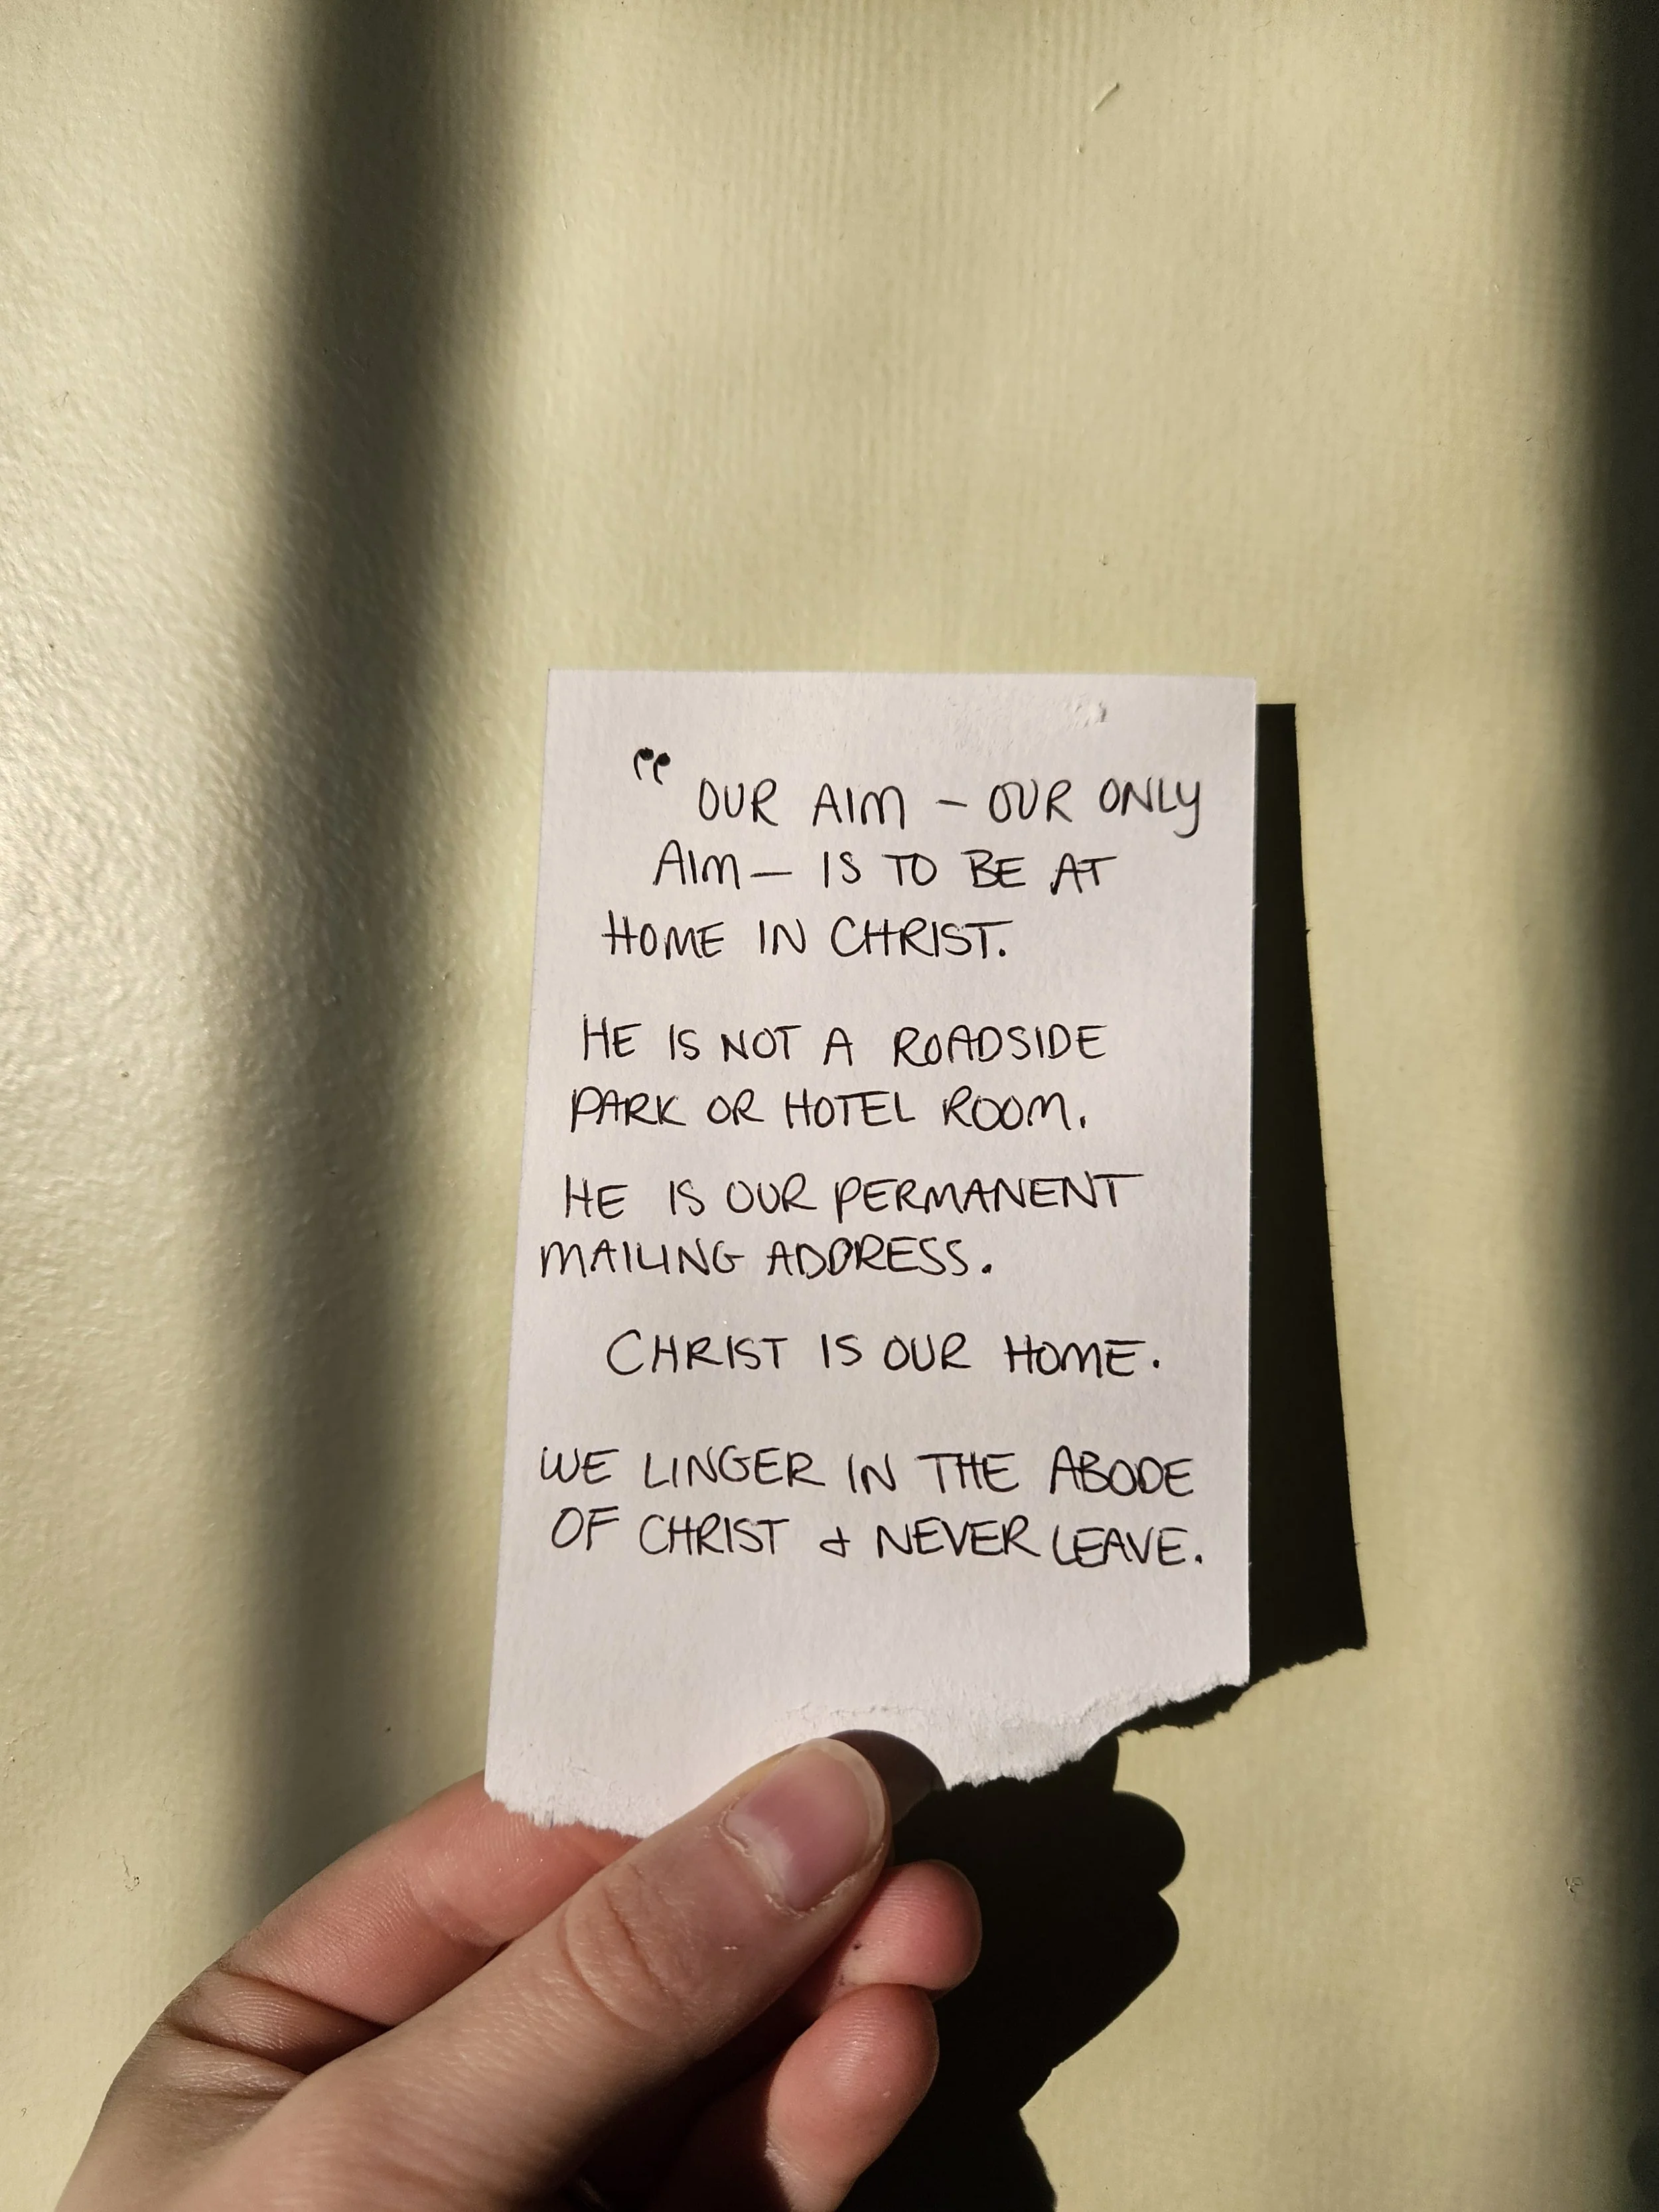 "OUR AIM – OUR ONLY
AIM — IS TO BE AT
HOME IN CHRIST.
HE IS NOT A ROADSIDE
PARK OR HOTEL ROOM.
HE IS OUR PERMANENT
MAILING ADDRESS.
CHRIST IS OUR HOME.
WE LINGER IN THE ABODE
OF CHRIST & NEVER LEAVE.